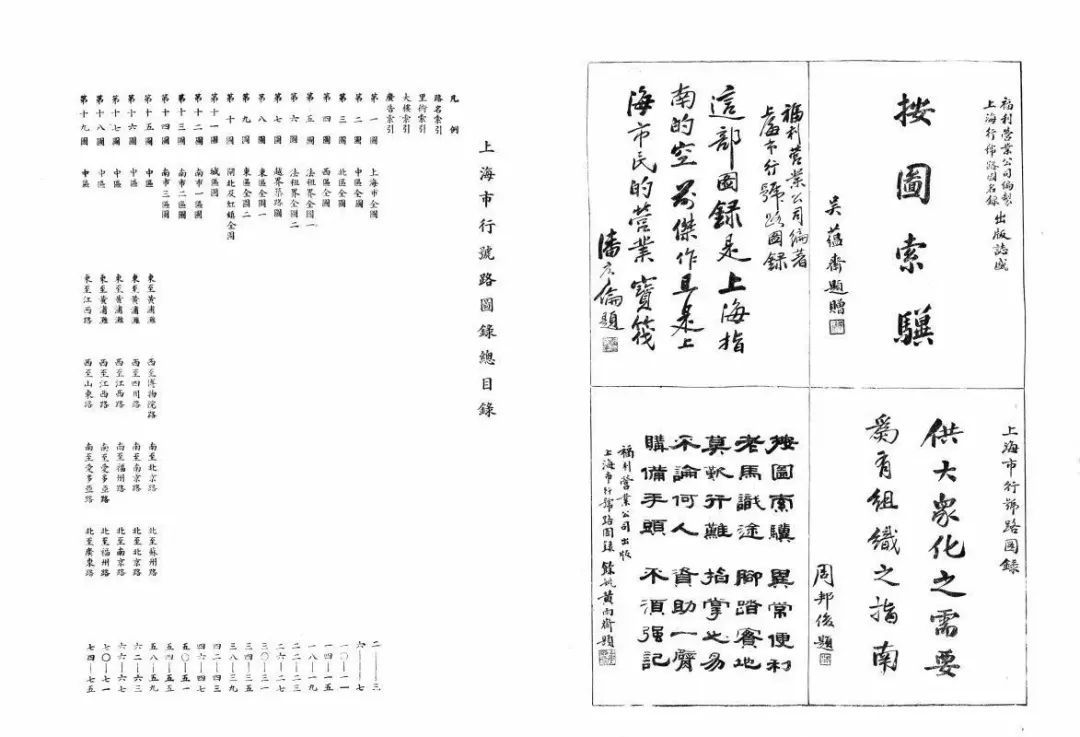 福利營業公司編製
上海行號路圖名錄 出版誌盛
按圖索驥
吳蘊齋題贈
福利營業公司編著
上海市行號路圖錄
這部圖錄是上海指
南的空前傑作且是上
海市民的營業寶筏
潘 倫題
上海市行號路圖錄
供大衆化之需要
爲有組織之指南
周邦俊題
按圖索驥 異常便利
老馬識途 腳踏實地
莫歎行難 指掌也易
不論何人 資助一臂
購備手頭 不須强記
福利營業公司出版
上海市行號路圖錄 餘姚黃雨齋題
上海市行號路圖錄總目錄
凡例
路名索引
里衖索引
大樓索引
廣告索引
第一圖 上海市全圖 二—三
第二圖 中區全圖 六—七
第三圖 北區全圖 一〇—一一
第四圖 西區全圖 一四—一五
第五圖 法租界全圖一 一八—一九
第六圖 法租界全圖二 二二—二三
第七圖 越界築路圖 二六—二七
第八圖 東區全圖一 三〇—三一
第九圖 東區全圖二 三四—三五
第十圖 閘北及虹鎮全圖 三八—三九
第十一圖 城區圖 四二—四三
第十二圖 南市一區圖 四六—四七
第十三圖 南市二區圖 五〇—五一
第十四圖 南市三區圖 五四—五五
第十五圖 中區 東至黃浦灘 西至博物院路 南至北京路 北至蘇州路 五八—五九
第十六圖 中區 東至黃浦灘 西至四川路 南至南京路 北至北京路 六二—六三
第十七圖 中區 東至黃浦灘 西至江西路 南至福州路 北至南京路 六六—六七
第十八圖 中區 東至黃浦灘 西至江西路 南至愛多亞路 北至福州路 七〇—七一
第十九圖 中區 東至江西路 西至山東路 南至愛多亞路 北至廣東路 七四—七五